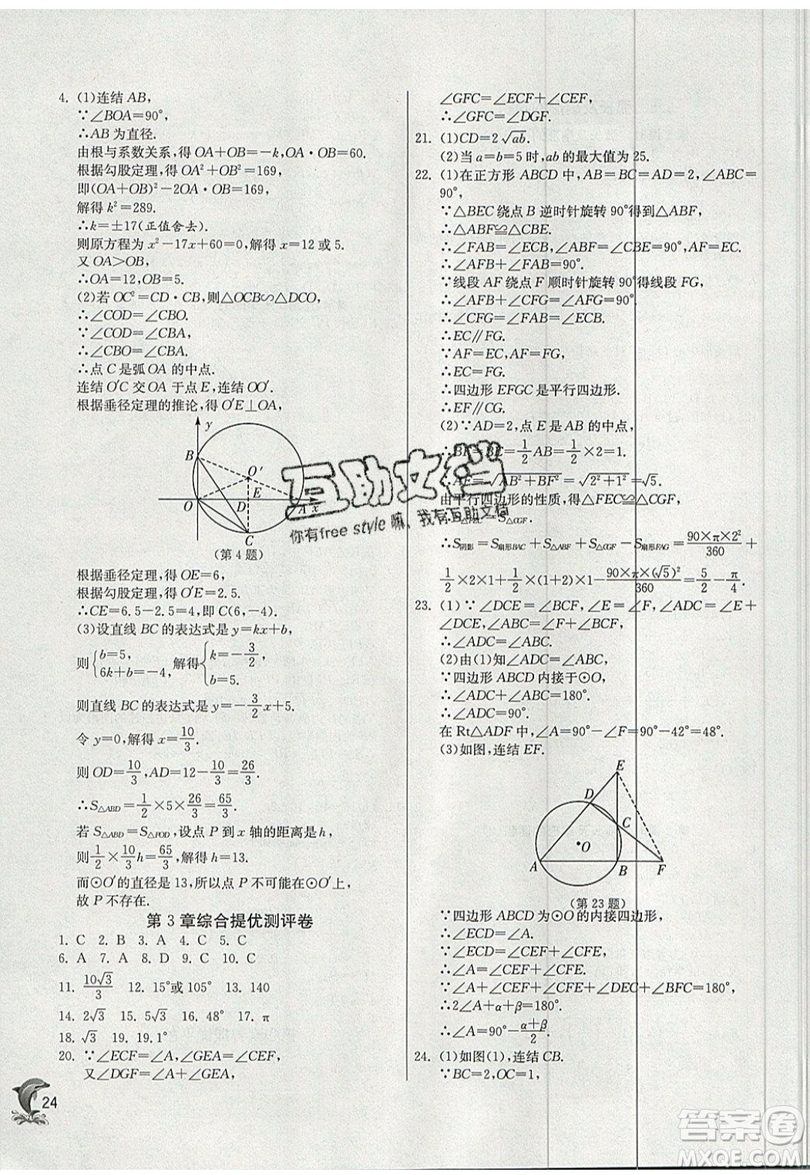 4. (1)连结 AB,
∵∠BOA=90°,
∴AB 为直径.
由根与系数关系,得 OA+OB=-k,OA·OB=60.
根据勾股定理,得 OA²+OB²=169,
即(OA+OB)²-2OA·OB=169,
解得 k²=289.
∴k=±17(正值舍去).
则原方程为 x²-17x+60=0,解得 x=12 或 5.
又 OA>OB,
∴OA=12,OB=5.
(2)若 OC²=CD·CB,则△OCB∽△DCO,
∴∠COD=∠CBO.
又∵∠COD=∠CBA,
∴∠CBO=∠CBA.
∴点 C 是弧 OA 的中点.
连结 O′C 交 OA 于点 E,连结 OO′.
根据垂径定理的推论,得 O′E⊥OA,
y
B
O′
E
O
D
A
x
C
(第 4 题)
根据垂径定理,得 OE=6,
根据勾股定理,得 O′E=2.5,
∴CE=6.5-2.5=4,即 C(6,-4).
(3)设直线 BC 的表达式是 y=kx+b,
则{b=5, 6k+b=-4, 解得{k=-3/2, b=5.
则直线 BC 的表达式是 y=-3/2x+5.
令 y=0,解得 x=10/3.
则 OD=10/3,AD=12-10/3=26/3.
∴S△ABD=1/2×5×26/3=65/3.
若 S△ABD=S△POD,设点 P 到 x 轴的距离是 h,
则1/2×10/3h=65/3,解得 h=13.
而⊙O′的直径是 13,所以点 P 不可能在⊙O′上,
故 P 不存在.
第 3 章综合提优测评卷
1. C 2. A 3. B 4. C 5. C
6. A 7. A 8. D 9. C 10. C
11. 10√3/3 12. 15°或 105° 13. 140
14. 2√3 15. 5√3 16. 4 17. π
18. √3 19. 19.1°
20. ∵∠ECF=∠A,∠GEA=∠CEF,
又∠DGF=∠A+∠GEA,
∠GFC=∠ECF+∠CEF,
∴∠GFC=∠DGF.
21. (1)CD=2√ab.
(2)当 a=b=5 时,ab 的最大值为 25.
22. (1)在正方形 ABCD 中,AB=BC=AD=2,∠ABC=
90°,
∵△BEC 绕点 B 逆时针旋转 90°得到△ABF,
∴△ABF≌△CBE.
∴∠FAB=∠ECB,∠ABF=∠CBE=90°,AF=EC.
∴∠AFB+∠FAB=90°.
∵线段 AF 绕点 F 顺时针旋转 90°得线段 FG,
∴∠AFB+∠CFG=∠AFG=90°.
∴∠CFG=∠FAB=∠ECB.
∴EC∥FG.
∵AF=EC,AF=FG,
∴EC=FG.
∴四边形 EFGC 是平行四边形.
∴EF∥CG.
(2)∵AD=2,点 E 是 AB 的中点,
∴FB=BE=1/2AB=1/2×2=1.
∴AF=√AB²+BF²=√2²+1²=√5.
由平行四边形的性质,得△FEC≌△CGF.
∴S△FEC=S△CGF.
∴S阴影=S扇形BAC+S△ABF+S△CGF-S扇形FAG=90×π×2²/360+
1/2×2×1+1/2×(1+2)×1-90×π×(√5)²/360=5/2-π/4.
23. (1)∵∠DCE=∠BCF,∠E=∠F,∠ADC=∠E+
∠DCE,∠ABC=∠F+∠BCF,
∴∠ADC=∠ABC.
(2)由(1)知∠ADC=∠ABC,
∵四边形 ABCD 内接于⊙O,
∴∠ADC+∠ABC=180°.
∴∠ADC=90°.
在 Rt△ADF 中,∠A=90°-∠F=90°-42°=48°.
(3)如图,连结 EF.
E
D
C
O
A
B
F
(第 23 题)
∵四边形 ABCD 为⊙O 的内接四边形,
∴∠ECD=∠A.
∵∠ECD=∠CEF+∠CFE,
∴∠A=∠CEF+∠CFE.
∵∠A+∠CEF+∠CFE+∠DEC+∠BFC=180°,
∴2∠A+α+β=180°.
∴∠A=90°-α+β/2.
24. (1)如图(1),连结 CB.
∵BC=2,OC=1,
24
互助文档
你有free style嘛,我有互助文档
答案圈
MXQE.COM